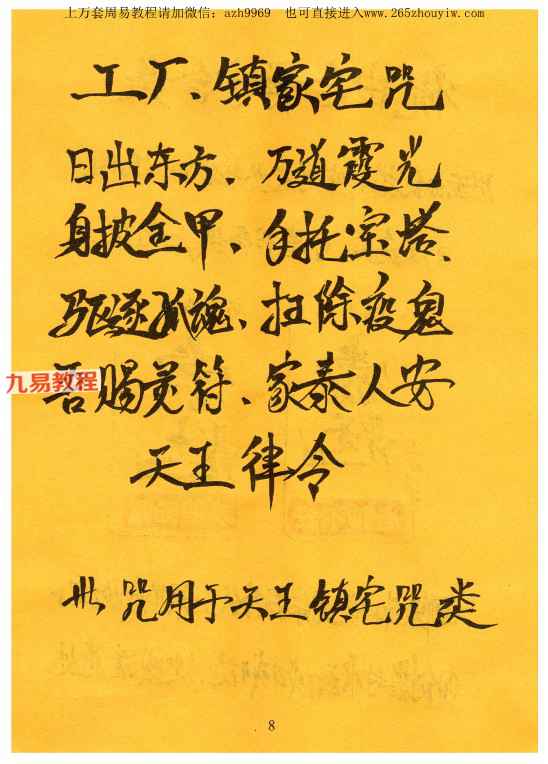 上万套周易教程请加微信：azh9969　也可直接进入www.265zhouyiw.com
工厂、镇家宅咒
日出东方、万道霞光
身披金甲、手托宝塔、
驱逐孤魂、扫除疫鬼
吾赐灵符、家泰人安
天王律令
此咒用于天王镇宅咒类
九易教程
8